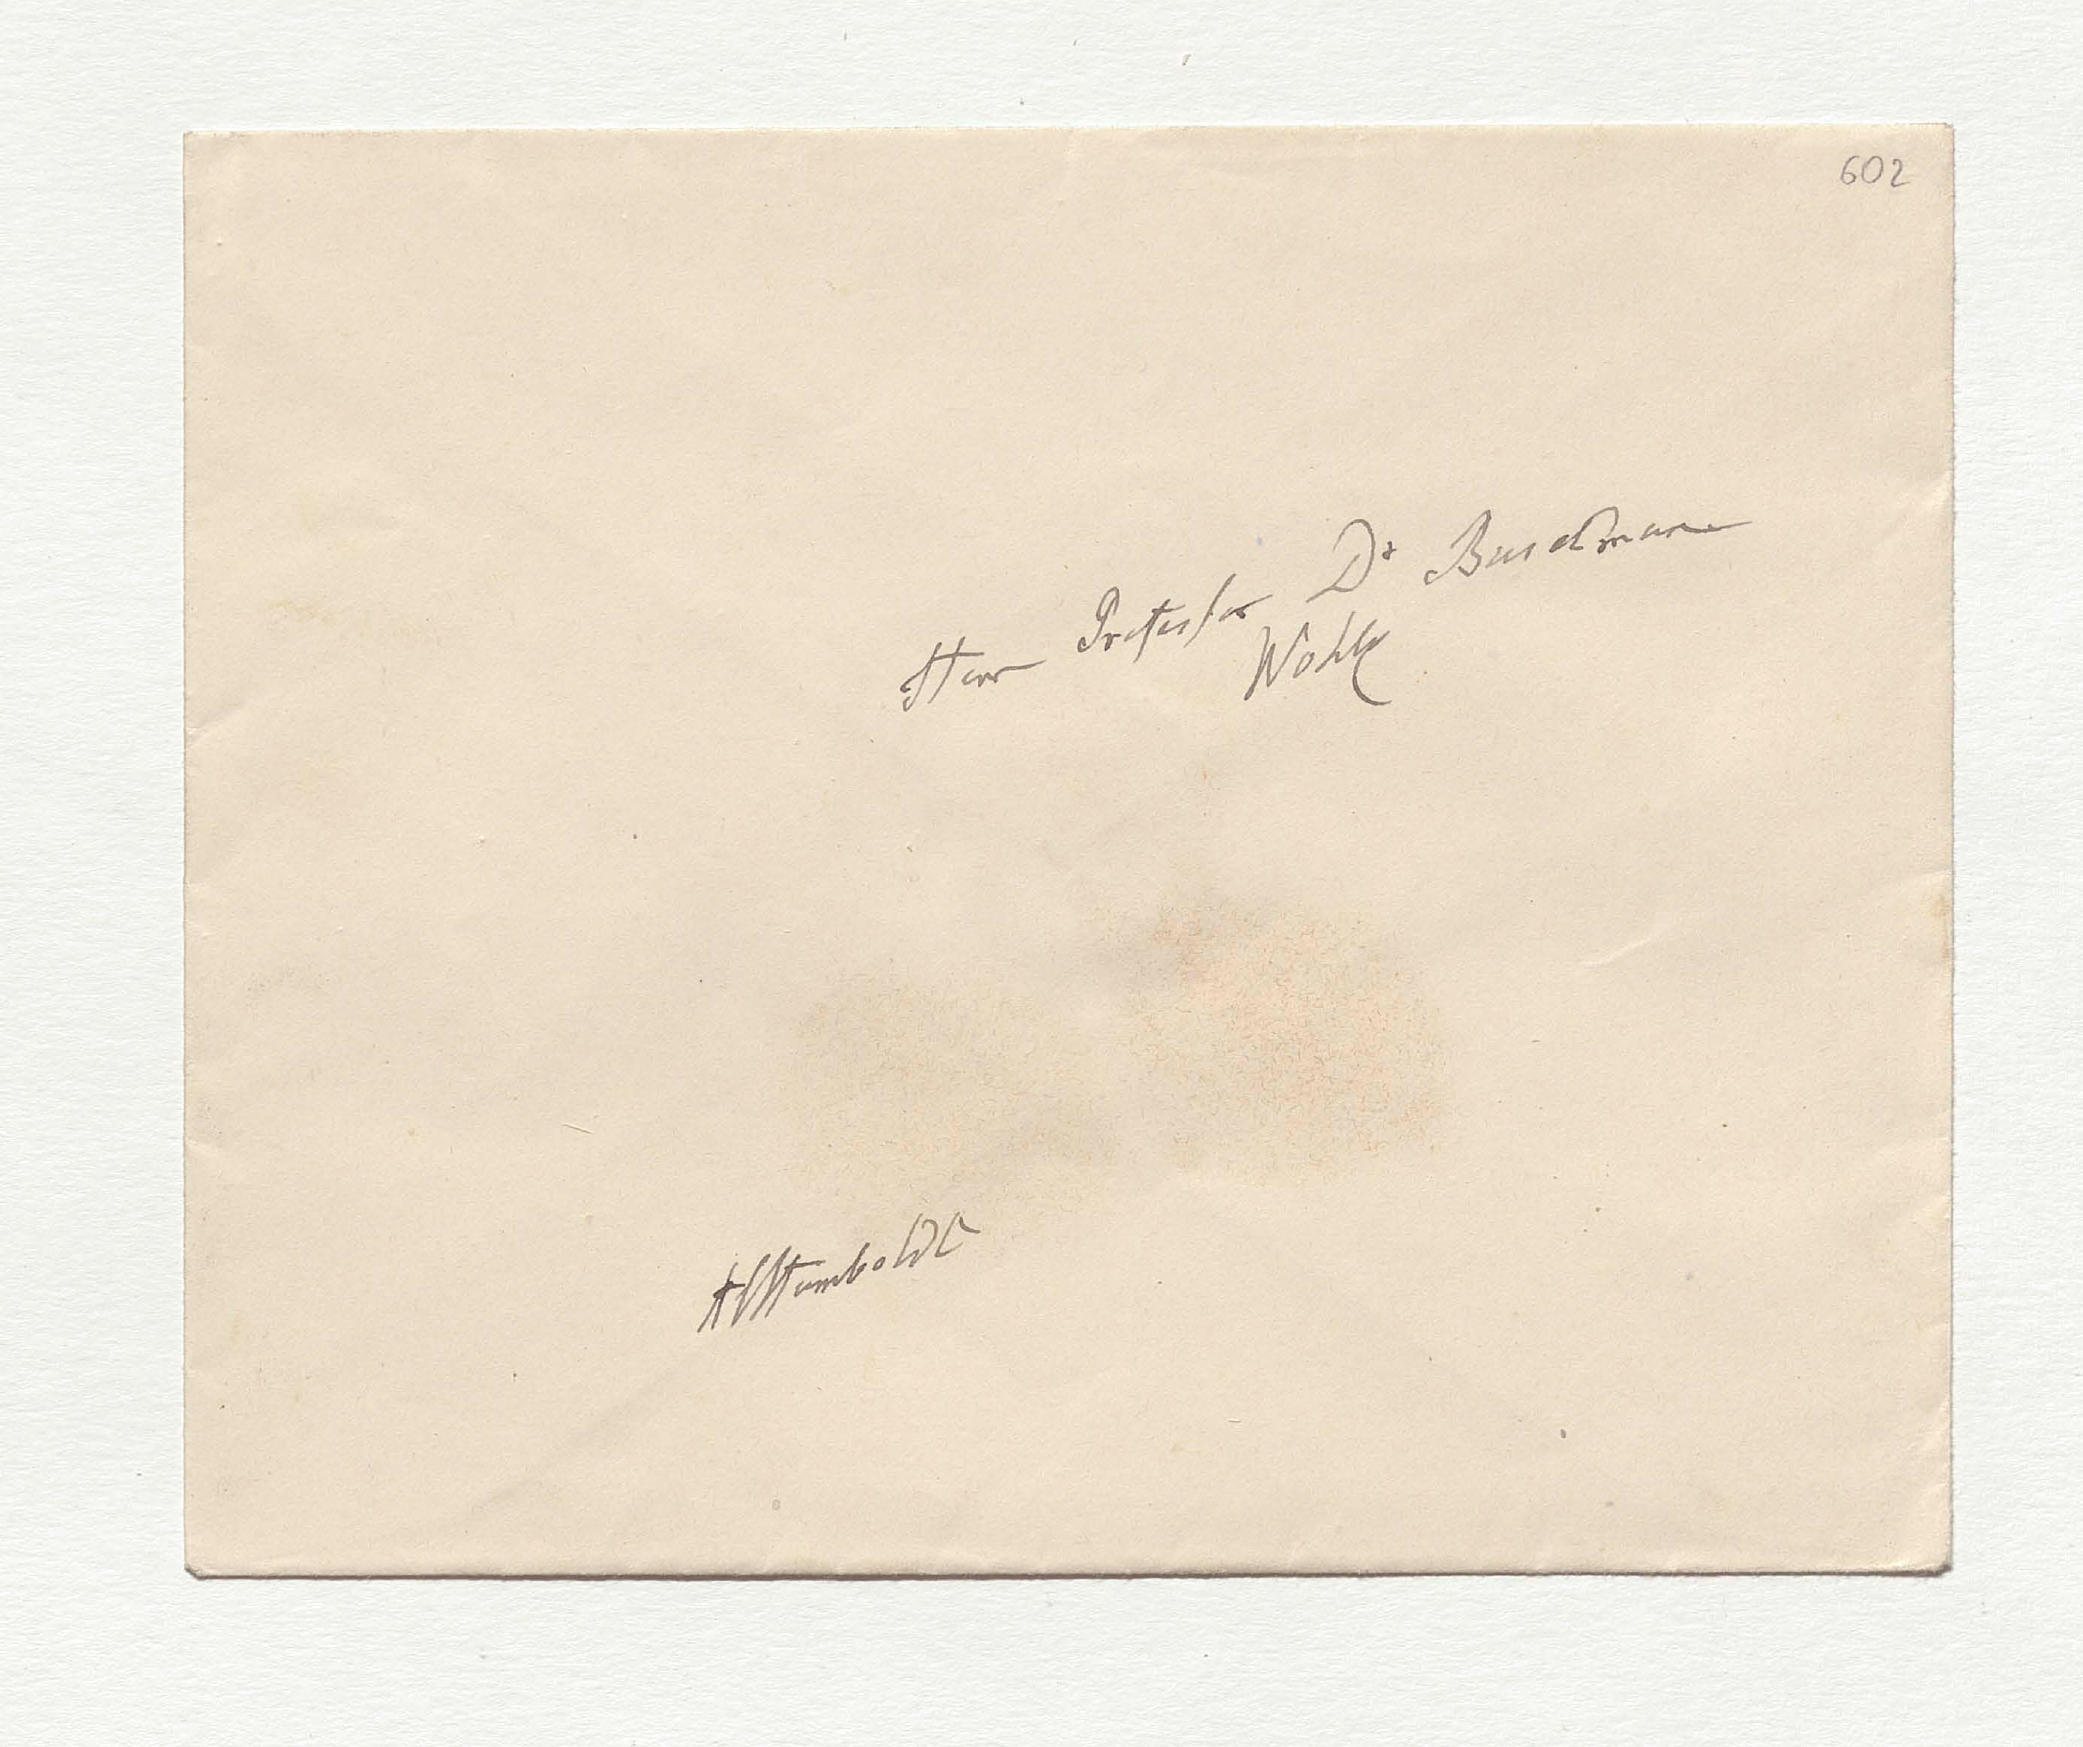 602
Herr Professor Dr Buschmann
Wohlg
AlHumboldt